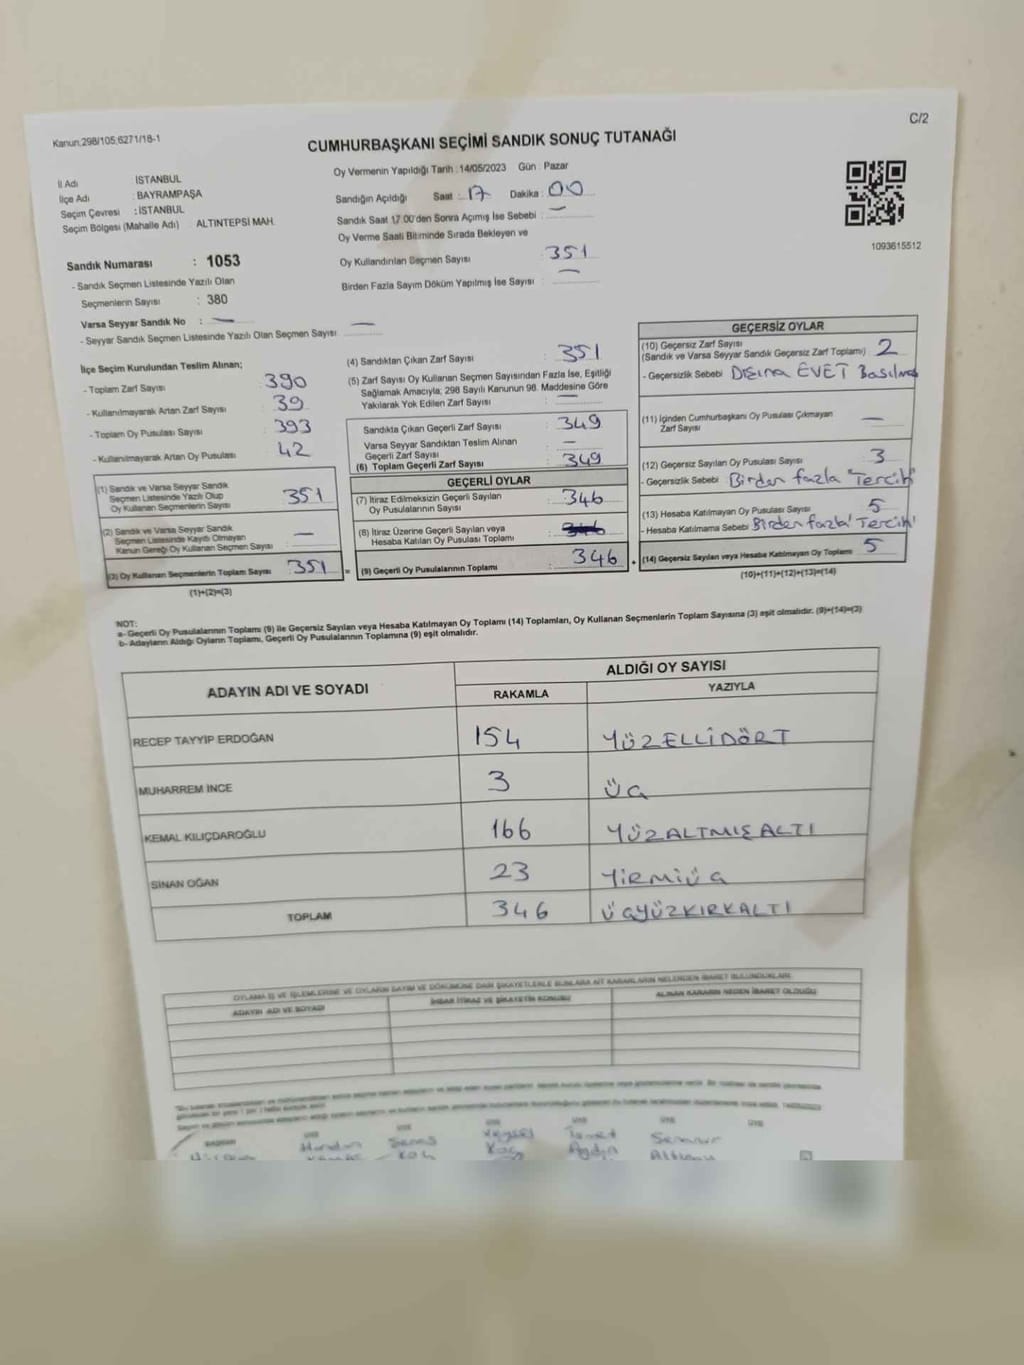 C/2
Kanun:298/105;6271/18-1
CUMHURBAŞKANI SEÇİMİ SANDIK SONUÇ TUTANAĞI
İl Adı : İSTANBUL
İlçe Adı : BAYRAMPAŞA
Seçim Çevresi : İSTANBUL
Seçim Bölgesi (Mahalle Adı) : ALTINTEPSİ MAH.
Sandık Numarası : 1053
- Sandık Seçmen Listesinde Yazılı Olan
Seçmenlerin Sayısı : 380
Varsa Seyyar Sandık No : —
- Seyyar Sandık Seçmen Listesinde Yazılı Olan Seçmen Sayısı —
Oy Vermenin Yapıldığı Tarih :14/05/2023 Gün : Pazar
Sandığın Açıldığı Saat : 17 Dakika : 00
Sandık Saat 17.00'den Sonra Açımış İse Sebebi : —
Oy Verme Saati Bitiminde Sırada Bekleyen ve
Oy Kullandırılan Seçmen Sayısı : 351
Birden Fazla Sayım Döküm Yapılmış İse Sayısı : —
1093615512
İlçe Seçim Kurulundan Teslim Alınan;
- Toplam Zarf Sayısı : 390
- Kullanılmayarak Artan Zarf Sayısı : 39
- Toplam Oy Pusulası Sayısı : 393
- Kullanılmayarak Artan Oy Pusulası : 42
(1) Sandık ve Varsa Seyyar Sandık
Seçmen Listesinde Yazılı Olup
Oy Kullanan Seçmenlerin Sayısı : 351
(2) Sandık ve Varsa Seyyar Sandık
Seçmen Listesinde Kayıtlı Olmayan
Kanun Gereği Oy Kullanan Seçmen Sayısı : —
(3) Oy Kullanan Seçmenlerin Toplam Sayısı : 351
(1)+(2)=(3)
(4) Sandıktan Çıkan Zarf Sayısı : 351
(5) Zarf Sayısı Oy Kullanan Seçmen Sayısından Fazla İse, Eşitliği
Sağlamak Amacıyla; 298 Sayılı Kanunun 98. Maddesine Göre
Yakılarak Yok Edilen Zarf Sayısı : —
Sandıkta Çıkan Geçerli Zarf Sayısı : 349
Varsa Seyyar Sandıktan Teslim Alınan
Geçerli Zarf Sayısı : —
(6) Toplam Geçerli Zarf Sayısı : 349
GEÇERLİ OYLAR
(7) İtiraz Edilmeksizin Geçerli Sayılan
Oy Pusulalarının Sayısı : 346
(8) İtiraz Üzerine Geçerli Sayılan veya
Hesaba Katılan Oy Pusulası Toplamı : 346
(9) Geçerli Oy Pusulalarının Toplamı : 346
GEÇERSİZ OYLAR
(10) Geçersiz Zarf Sayısı
(Sandık ve Varsa Seyyar Sandık Geçersiz Zarf Toplamı) 2
- Geçersizlik Sebebi : Dışına EVET Basılması
(11) İçinden Cumhurbaşkanı Oy Pusulası Çıkmayan
Zarf Sayısı : —
(12) Geçersiz Sayılan Oy Pusulası Sayısı : 3
- Geçersizlik Sebebi : Birden fazla "Tercih"
(13) Hesaba Katılmayan Oy Pusulası Sayısı : 5
- Hesaba Katılmama Sebebi : Birden fazla' Tercih'
(14) Geçersiz Sayılan veya Hesaba Katılmayan Oy Toplamı : 5
(10)+(11)+(12)+(13)=(14)
NOT:
a- Geçerli Oy Pusulalarının Toplamı (9) ile Geçersiz Sayılan veya Hesaba Katılmayan Oy Toplamı (14) Toplamları, Oy Kullanan Seçmenlerin Toplam Sayısına (3) eşit olmalıdır. (9)+(14)=(3)
b- Adayların Aldığı Oyların Toplamı, Geçerli Oy Pusulalarının Toplamına (9) eşit olmalıdır.
ADAYIN ADI VE SOYADI
ALDIĞI OY SAYISI
RAKAMLA YAZIYLA
RECEP TAYYİP ERDOĞAN 154 YÜZELLİDÖRT
MUHARREM İNCE 3 ÜÇ
KEMAL KILIÇDAROĞLU 166 YÜZALTMIŞALTI
SİNAN OĞAN 23 YİRMİÜÇ
TOPLAM 346 ÜÇYÜZKIRKALTI
OYLAMA İŞ VE İŞLEMLERİNE VE OYLARIN SAYIM VE DÖKÜMÜNE DAİR ŞİKAYETLERLE BUNLARA AİT KARARLARIN NELERDEN İBARET BULUNDUKLARI
ADAYIN ADI VE SOYADI
İHBAR İTİRAZ VE ŞİKAYETİN KONUSU
ALINAN KARARIN NEDEN İBARET OLDUĞU
BAŞKAN ÜYE ÜYE ÜYE ÜYE ÜYE ÜYE
Veysel İsmet
Koç Aydın